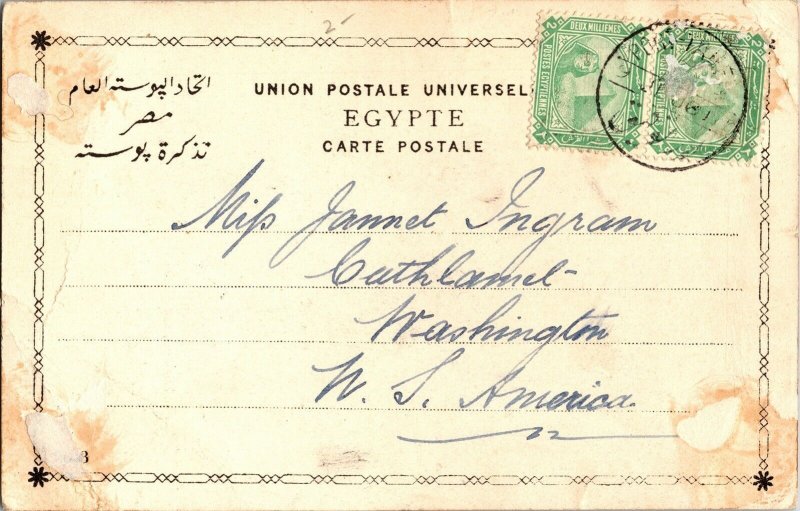 2-
اتحاد الپوسته العام
مصر
تذكرة پوسته
UNION POSTALE UNIVERSEL
EGYPTE
CARTE POSTALE
DEUX MILLIEMES
POSTES EGYPTIENNES
DEUX MILLIEMES
Miss Jannet Ingram
Cathlamet
Washington
U. S. America
3